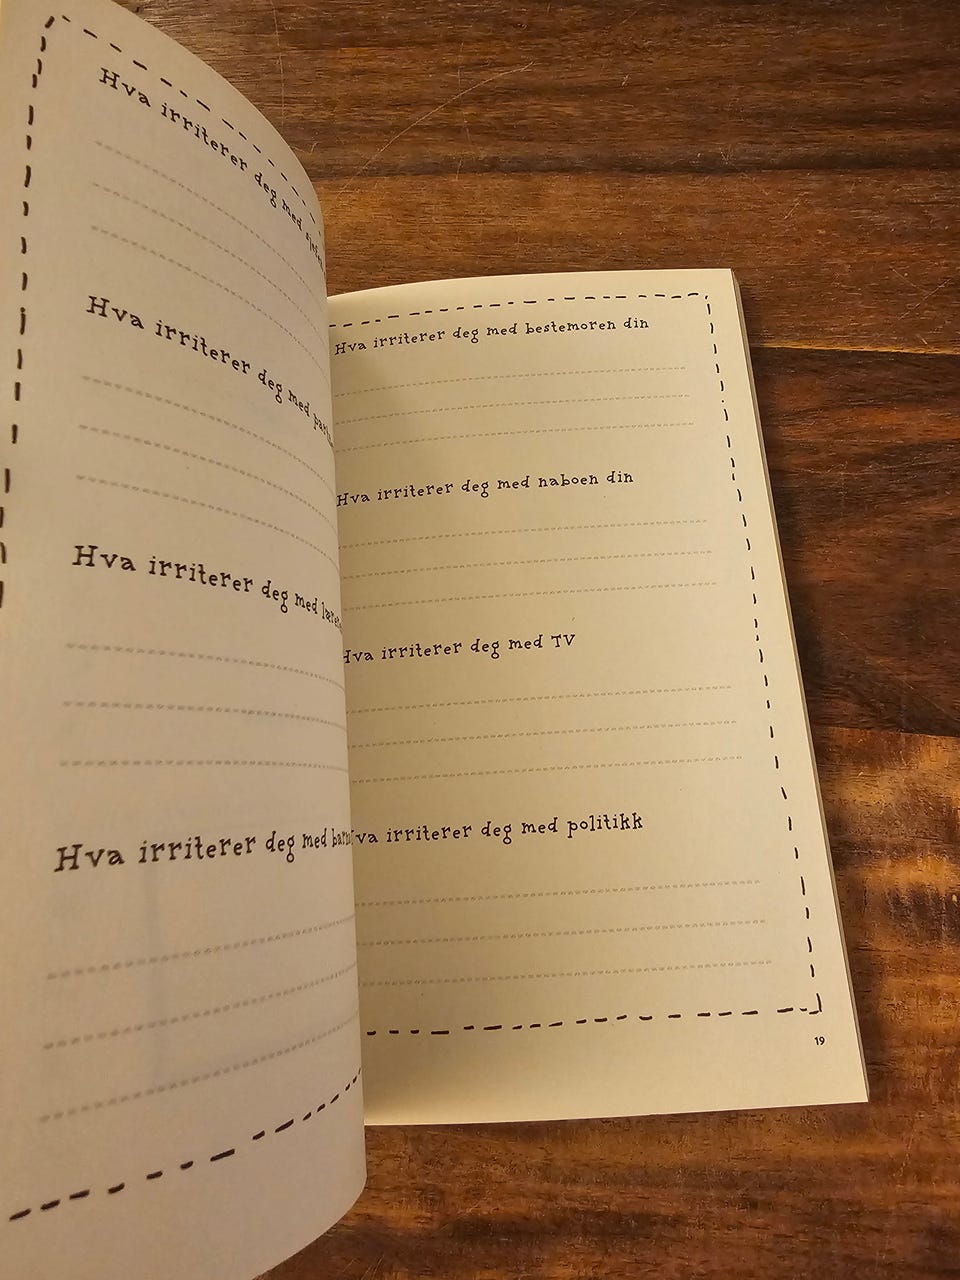 Hva irriterer deg med
Hva irriterer deg med
Hva irriterer deg med
Hva irriterer deg med
Hva irriterer deg med bestemoren din
Hva irriterer deg med naboen din
Hva irriterer deg med TV
va irriterer deg med politikk
19